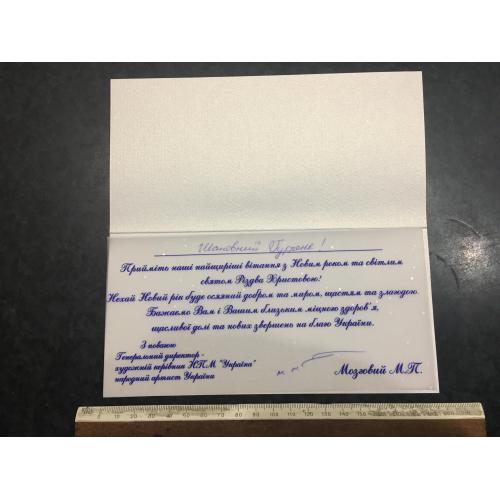 Шановний !
Прийміть наші найщиріші вітання з Новим роком та світлим
святом Різдва Христовою!
Нехай Новий рік буде осяяний добром та миром, щастям та злагодою.
Бажаємо Вам і Вашим близьким міцного здоров'я,
щасливої долі та нових звершень на благо України.
З повагою
Генеральний директор -
художній керівник НПМ "Україна"
народний артист України
Мозговий М.П.